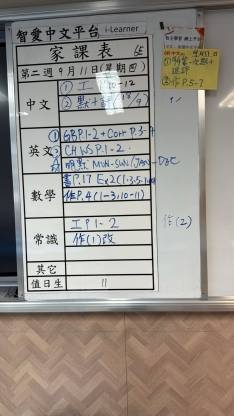 智愛中文平台 i-Learner
家課表 6E
第二週 9月11日(星期四)
中文
① 工 10-12
② 默+
英文
① GBP.1-2 + Corr P.3-4
② CHWS P.1-2
明默 MON-SUN (JAN-DEC
數學
書P.17 Ex2(1,3,5
作P.4(1-3,10-11)
常識
工P1-2
作(1)改
作(2)
其它
值日生 11
9月11日
作P.5-7